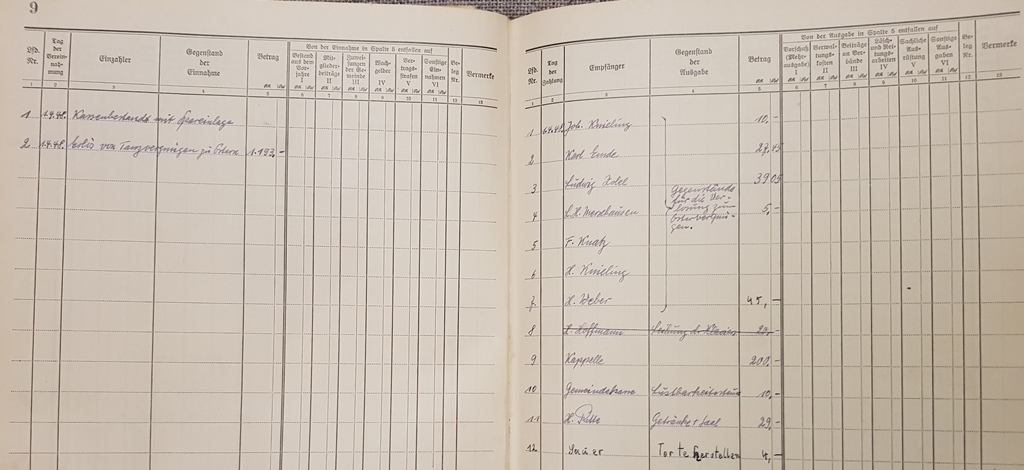 9
Von der Einnahme in Spalte 5 entfallen auf
Lfd. Nr.
Tag der Vereinnahmung
Einzahler
Gegenstand der Einnahme
Betrag
Bestand aus dem Vorjahre I
Mitgliederbeiträge II
Zuwendungen der Gemeinde III
Wachgelder IV
Ordnungsstrafen V
Sonstige Einnahmen VI
Beleg Nr.
Bemerkte
1 2 3 4 5 6 7 8 9 10 11 12 13
1 1.4.48. Kassenbestand mit Spareinlage
2 1.4.48. Erlös von Tanzvergnügen zu Ostern 1.193,-
Von der Ausgabe in Spalte 5 entfallen auf
Lfd. Nr.
Tag der Zahlung
Empfänger
Gegenstand der Ausgabe
Betrag
Vorschuß (Mehrausgabe) I
Verwaltungskosten II
Beiträge an Verbände III
Lösch- und Rettungsarbeiten IV
Sachliche Ausrüstung V
Sonstige Ausgaben VI
Beleg Nr.
Bemerkte
1 2 3 4 5 6 7 8 9 10 11 12 13
1 Joh. Knieling 10,-
2 Karl Emde 27,45
3 Ludwig 39 05
Gegenstände
für die Ver-
losung zum
Ostervergnü-
gen.
4 Merxhausen 5,-
5 F. Knatz
6 H. Knieling
7 H. Weber 45,-
8 H. Hoffmann 20,-
9 Kappelle 200,-
10 Gemeindekasse Lustbarkeitssteuer 10,-
11 H. Getränke + Saal 29,-
12 Sauer Torte herstellen 4,-